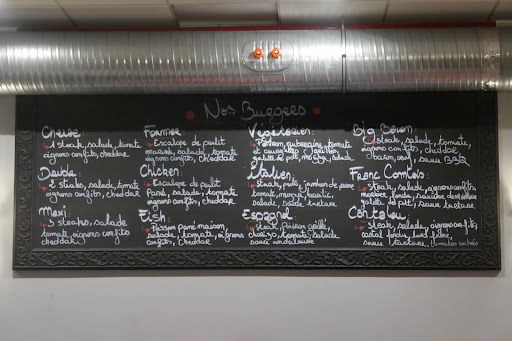 Nos Burgers
Cheese:
1 steak, salade, tomate
oignons confits, cheddar
Double:
2 steaks, salade, tomate
oignons confits, cheddar
Maxi:
3 steaks, salade
tomate, oignons confits
cheddar
Fermier:
Escalope de poulet
salade, tomate
oignons confits, cheddar
Chicken:
Escalope de poulet
pané, salade, tomate
oignons confits,
cheddar
Fish:
Poisson pané maison,
salade, tomate, oignons
confits, cheddar
Végétarien:
Poivron, aubergine, tomate
et grillés
galette de pdt, salade
Italien:
steak, jambon de parme
tomate, basilic,
salade, sauce
Espagnol
steak, Poivron grillé,
chorizo, tomate, salade
sauce andalouse
Big Bacon:
steak, salade, tomate,
oignons confits, cheddar
bacon, oeuf, sauce BBQ
Franc Comtois:
steak, salade, oignons confits,
galette de pdt, sauce tartare
Cantalou:
steak, salade, oignons confits,
cantal fondu, lard fumé,
sauce tartare, tomates